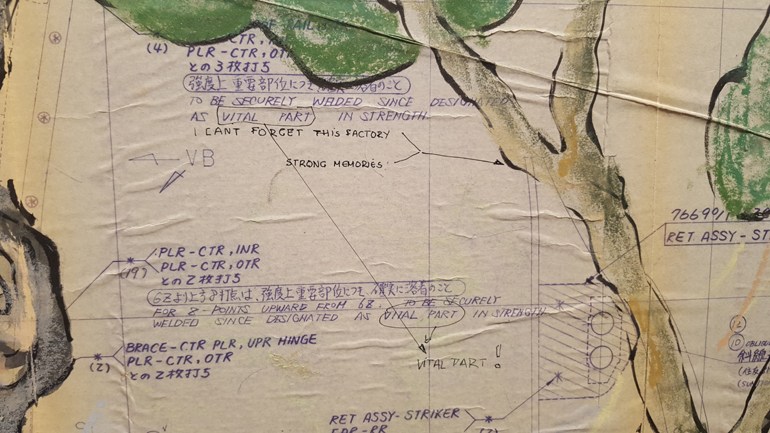 (4)
PLR-CTR, OTR
との3枚打ち
強度上重要部位につき 確実に溶着のこと
TO BE SECURELY WELDED SINCE DESIGNATED
AS VITAL PART IN STRENGTH
I CANT FORGET THIS FACTORY
STRONG MEMORIES
VB
76690/
RET ASSY-ST
PLR-CTR, INR
(19) PLR-CTR, OTR
との2枚打ち
6Zより上方打点は、強度上重要部位につき 確実に溶着のこと
FOR 2-POINTS UPWARD FROM 6Z, TO BE SECURELY
WELDED SINCE DESIGNATED AS VITAL PART IN STRENGTH
BRACE-CTR PLR, UPR HINGE
(2) PLR-CTR, OTR
との2枚打ち
VITAL PART!
RET ASSY-STRIKER